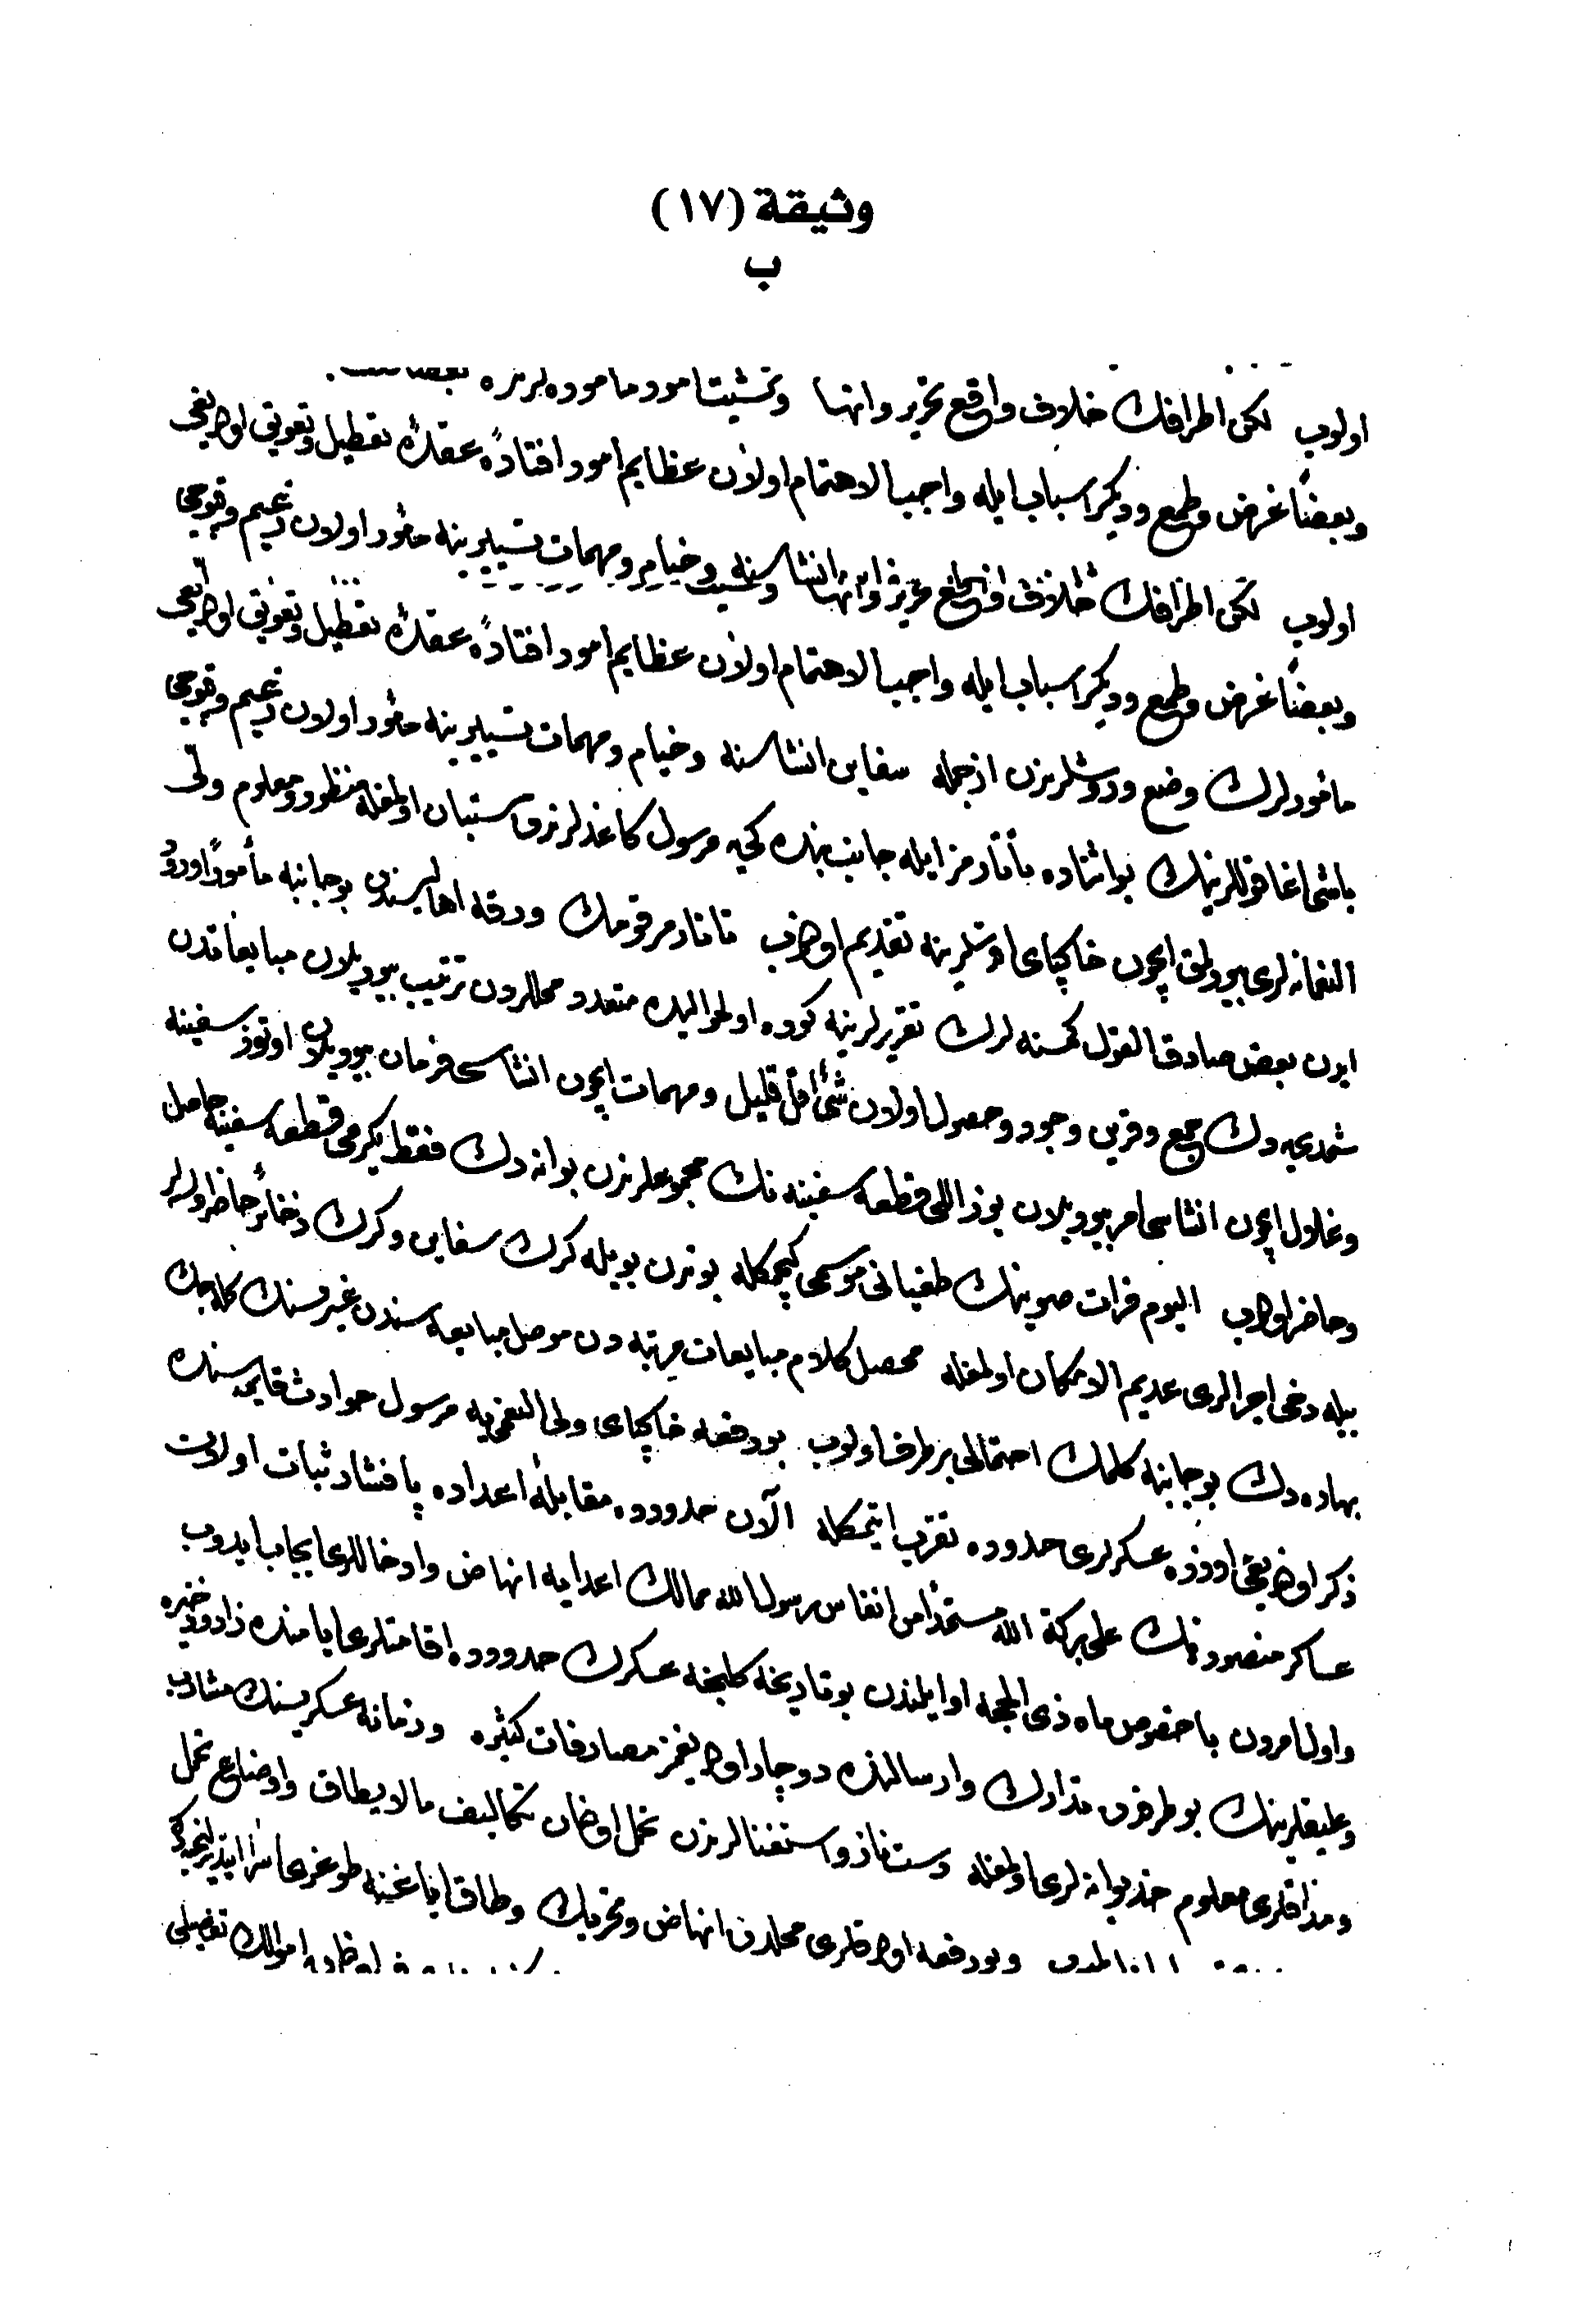 وثيقة (١٧)
ب
اولوب لكن اطرافك خلاف واقع تحرير وانها وتمشيت امور مامورہ لرنده
وبعضاً غرض وطمع وديكر اسباب ايله واجب الاهتمام اولان عظايم امور افتادۀ عقدۀ تعطيل وتعويق اولديغى
اولوب لكن اطرافك خلاف واقع تحرير وانها انشاسنه وخيام ومهمات تسييرينه مأمور اولان زعيم وقپوجى
وبعضاً غرض وطمع وديكر اسباب ايله واجب الاهتمام اولان عظايم امور افتادۀ عقدۀ تعطيل وتعويق اولديغى
مأمورلرك وضع وروشلرندن ازجمله سفاين انشاسنه وخيام ومهمات تسييرينه مأمور اولان زعيم وقپوجى
باشى اغا قوللرينك بو اثناده تاتارمز ايله جانب بنده كى يه مرسول كاغدلرندن مستبان اولمغله منظور ومعلوم ولى
النعمانه لرى بيورلمق ايچون خاكپاى اوشلرينه تقديم اولنوب تاتار مرقومك ورقه اهاليسندن بو جانبه مأموراً ورود
ايدن بعض صادق القول كمسنه لرك تقريرلرينه كوره اول حواليده متعدد محللردن ترتيب بيوريلان مبايعاتدن
شمدى يه دك جمع وقرين وجود وحصول اولان شئ اقل قليل ومهمات ايچون انشاسى فرمان بيوريلان اوتوز سفينه
وغلال ايچون انشاسى امر بيوريلان يوز اللى قطعه سفينه نك مجموعلرندن بو انه دك فقط يكرمى قطعه سفينه حاصل
وحاضر اولوب اليوم فرات صوينك طغيانى موسمى كچمكله بوندن بويله كرك سفاين وكرك ذخائر حاضر اولسه لر
بيله دخى اجرالرى عديم الامكان اولمغله محصل كلام مبايعات مرتبه دن موصل مبايعه سندن غيريسنك كله جك
بهاره دك بو جانبه كلمك احتمالى برطرف اولوب بو دفعه خاكپاى ولى النعمى يه مرسول حوادث قايمه سنده
ذكر اولنديغى اوزره عسكرلرى حدوده تقرب ايتمكله الآن حدودده مقابلۀ اعداده پافشار ثبات اولان
عساكر منصوره نك على بركة الله مستمداً من انفاس رسول الله ممالك اعدايه انهاض وادخاللرى ايجاب ايدوب
واول امردن باخصوص ماه ذى الحجه اوايلندن بو تاريخه كلنجه عسكرك حدودده اقامتلرى ايامنده زاد وذخيره
وعليقلرينك بو طرفدن تدارك وارسالنده دوچار اولديغمز مصادفات كثيره وزمانه عسكريسنك مشارب
ومذاقلرى معلوم خديوانه لرى اولمغله دست ناز واستغنالرندن تحمل اولنان تكاليف مالايطاق واوضاع تحمل
وبو دفعه اولدقلرى محلدن انهاض وتحريك وطاق اياغينه طوغرى اسرا
اموالك تفصيلى